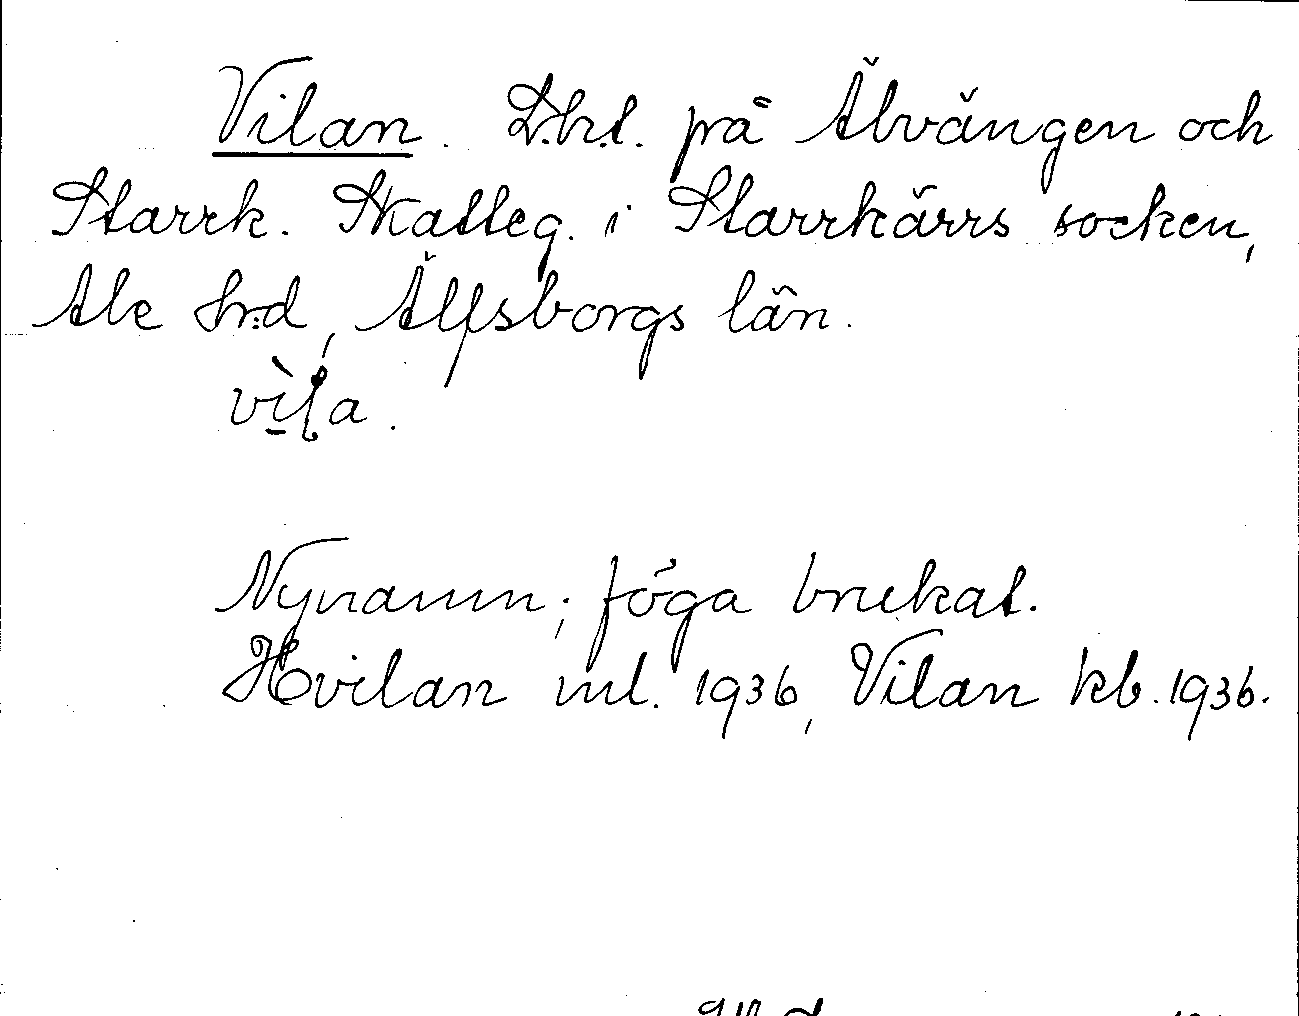 Vilan. L.h.t. på Älvängen och
Starrk. Skatteg. i Starrkärrs socken,
Ale hrd, Älfsborgs län.
vìla.
Nynamn; föga brukat.
Hvilan ml. 1936, Vilan kb. 1936.